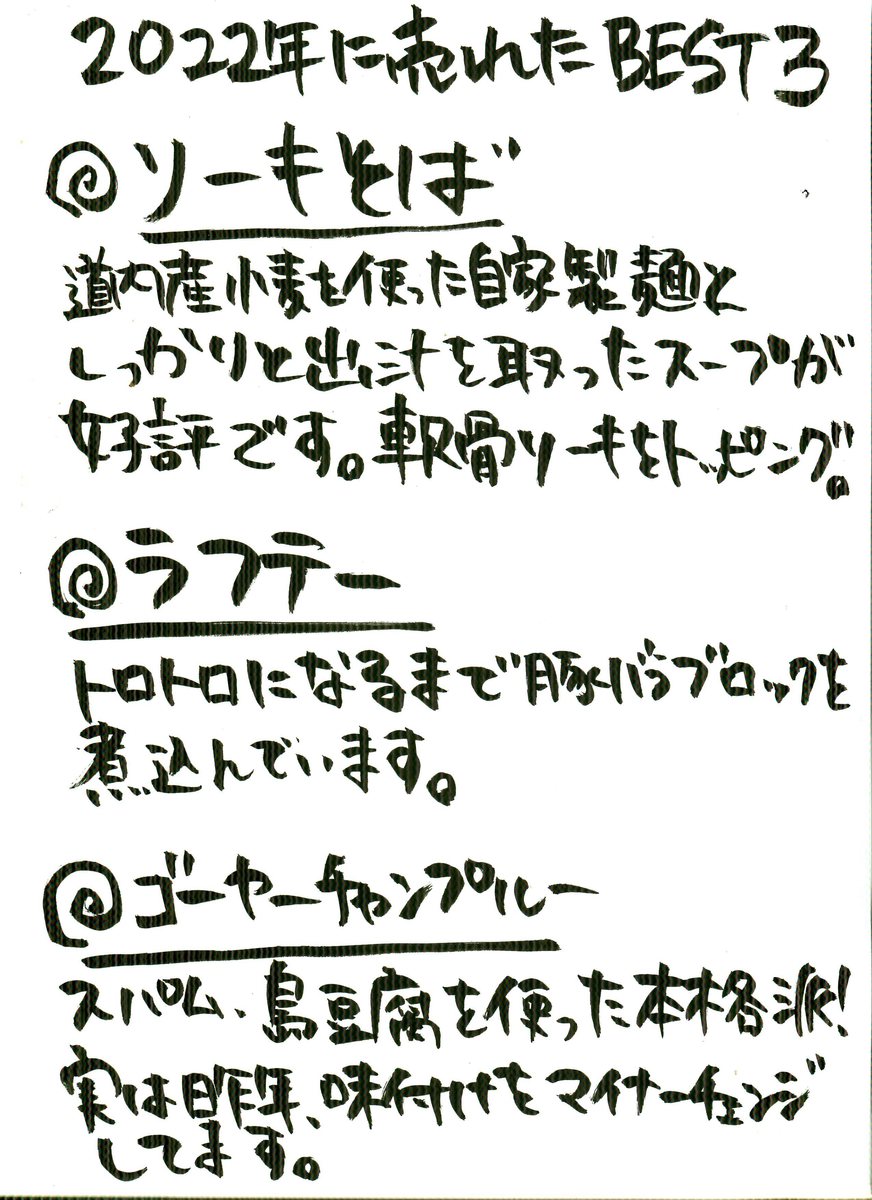 2022年に売れたBEST3
@ソーキそば
道内産小麦を使った自家製麺と
しっかりと出汁を取ったスープが
好評です。軟骨ソーキをトッピング。
@ラフテー
トロトロになるまで豚バラブロックを
煮込んでいます。
@ゴーヤーチャンプルー
スパム、島豆腐を使った本格派!
実は昨年、味付けをマイナーチェンジ
してます。